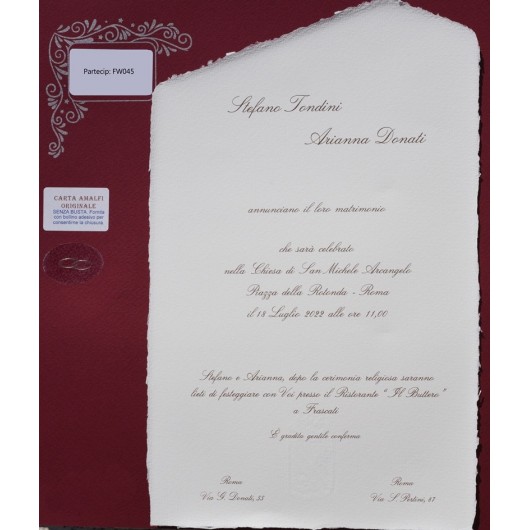 Partecip: FW045
Stefano Tondini
Arianna Donati
CARTA AMALFI
ORIGINALE
SENZA BUSTA. Fornita
con bollino adesivo per
consentirne la chiusura.
annunciano il loro matrimonio
che sarà celebrato
nella Chiesa di San Michele Arcangelo
Piazza della Rotonda - Roma
il 18 Luglio 2022 alle ore 11,00
Stefano e Arianna, dopo la cerimonia religiosa saranno
lieti di festeggiare con Voi presso il Ristorante " Il Buttero "
a Frascati
È gradita gentile conferma
Roma
Via G. Donati, 33
Roma
Via S. Pertini, 87